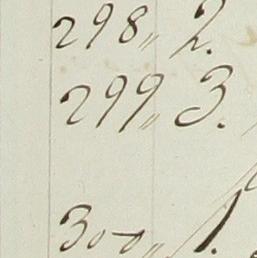 298„ 2.
299„ 3.
300„ 1.